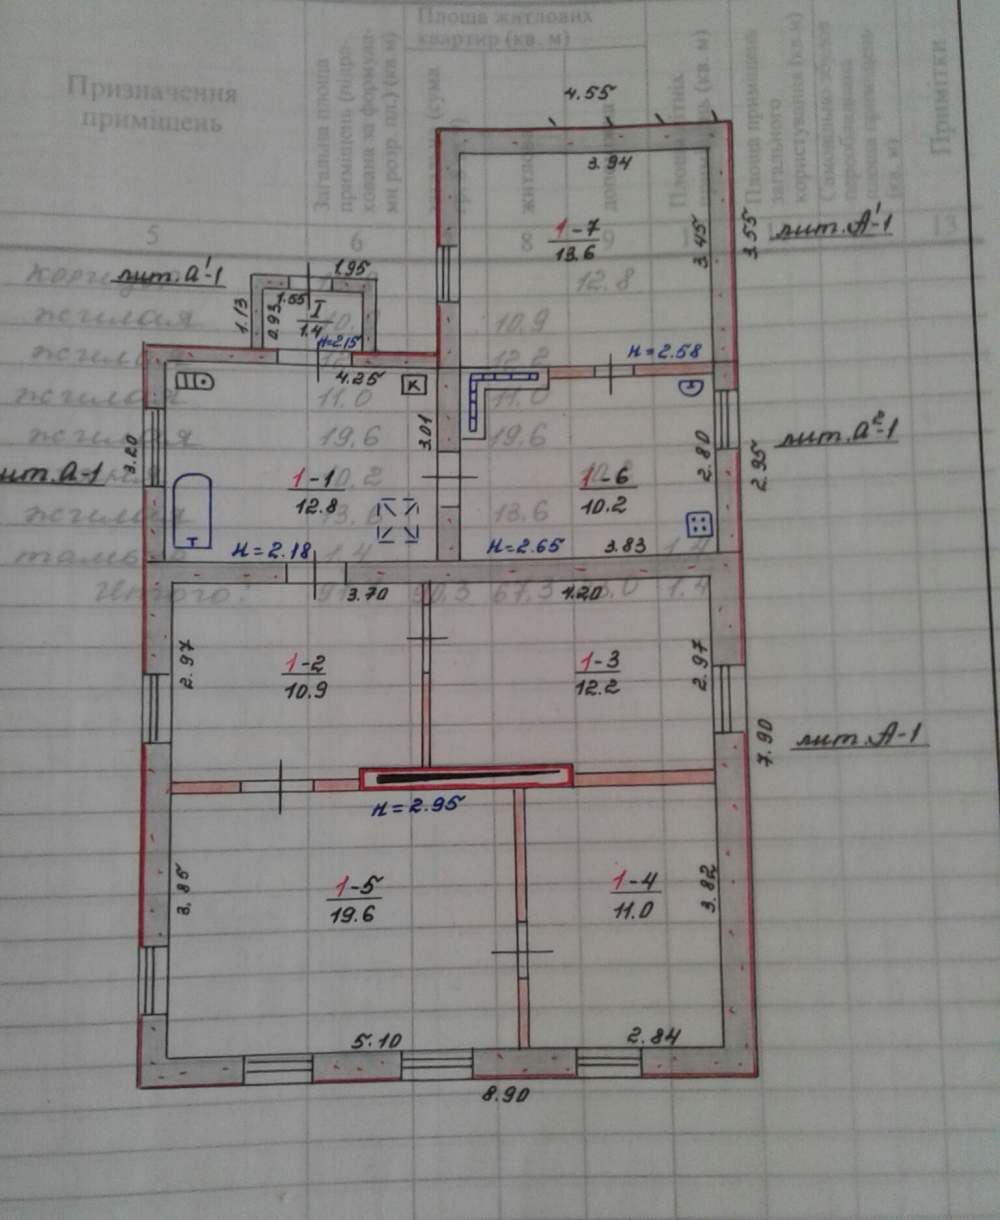 Площа житлових
квартир (кв. м)
Призначення
приміщень
Загальна площа
Примітки
5
6
8
9
13
4.55
3.94
1-7
13.6
3.45
3.55
лит.А¹-1
12.8
лит.а¹-1
1.95
1.55
I
1.4
1.13
0.93
н=2.15
жилая
10.9
н=2.58
4.25
К
12.2
жилая
11.0
11.0
3.01
3.20
жилая
19.6
19.6
2.80
2.95
лит.а²-1
лит.а-1
1-1
12.8
10.2
1-6
10.2
жилая
13.6
13.6
Т
н=2.18
н=2.65
3.83
1.4
1.4
Итого:
67.3
1.4
3.70
4.20
2.97
1-2
10.9
1-3
12.2
2.97
7.90
лит.А-1
н=2.95
3.85
1-5
19.6
1-4
11.0
3.82
5.10
2.84
8.90